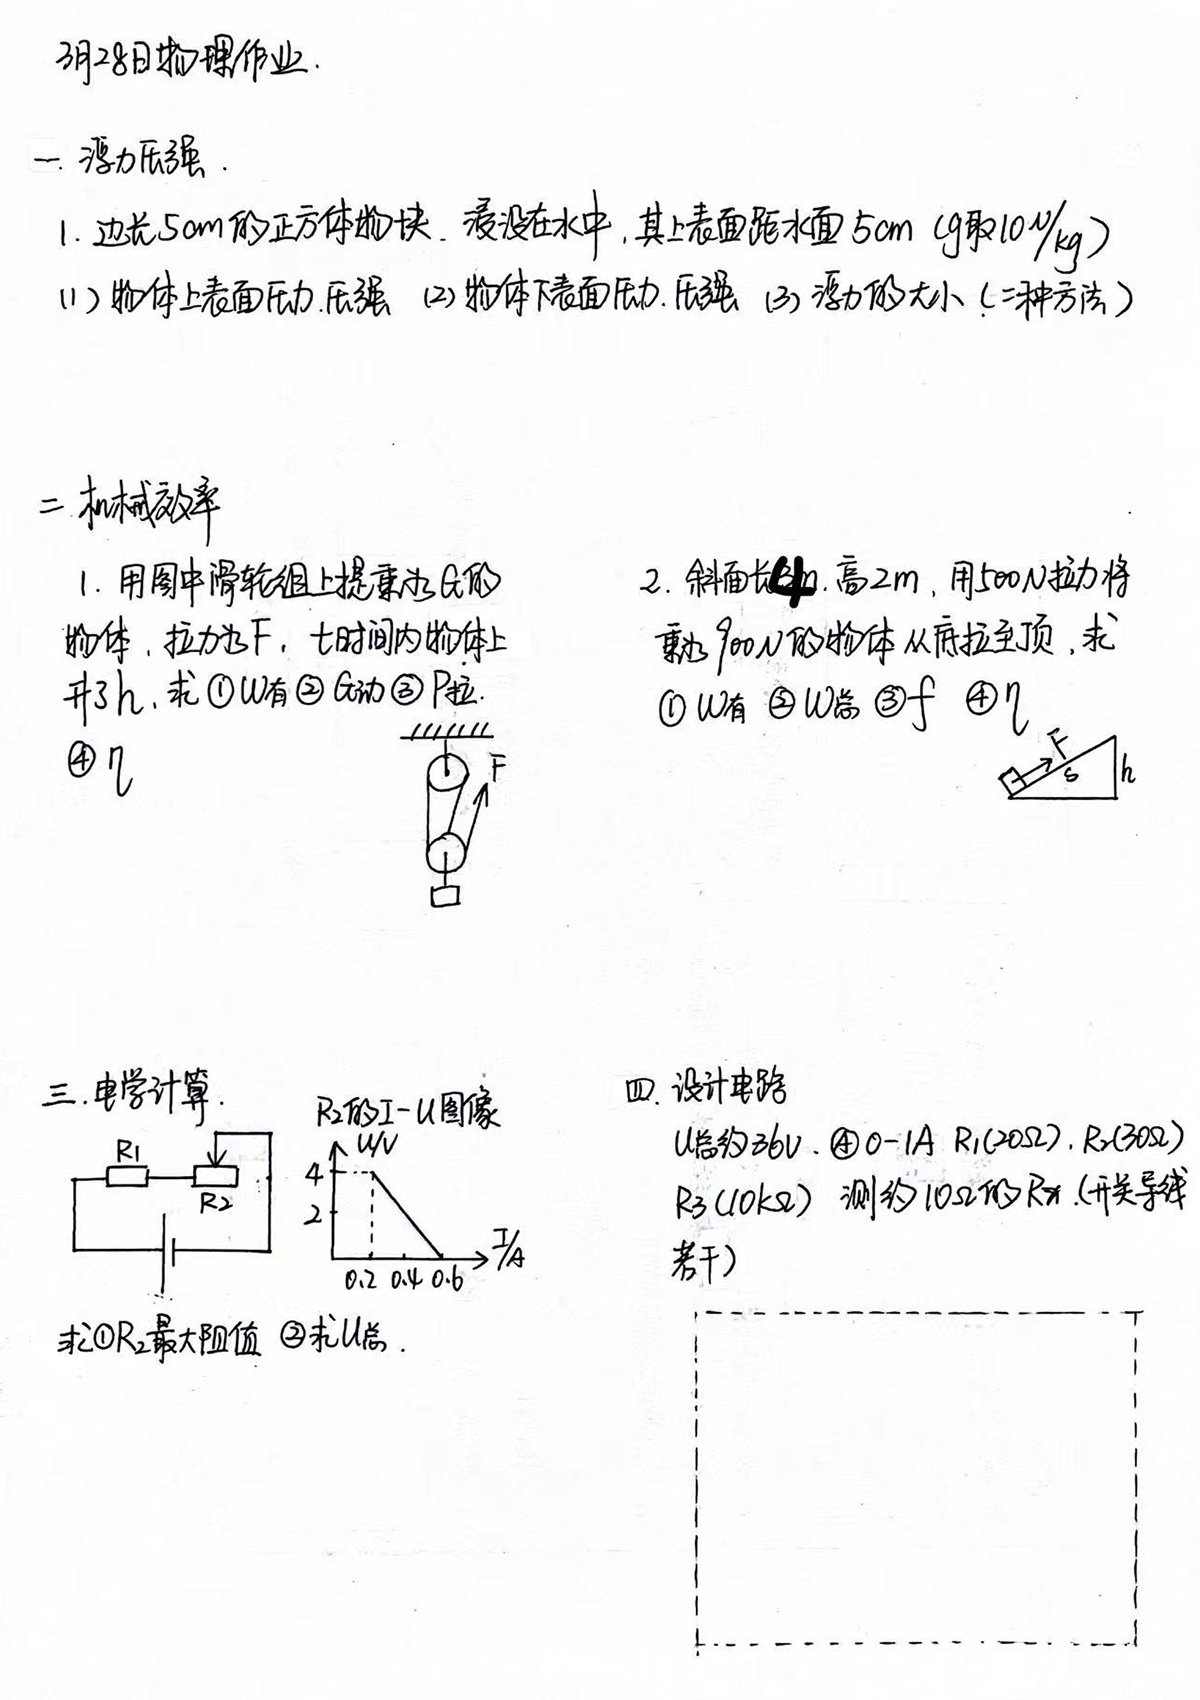 3月28日物理作业.
一. 浮力压强.
1. 边长5cm的正方体物块. 浸没在水中, 其上表面距水面5cm (g取10N/kg)
(1) 物体上表面压力.压强 (2) 物体下表面压力.压强 (3) 浮力的大小 (二种方法)
二 机械效率
1. 用图中滑轮组上提重为G的
物体, 拉力为F, t时间内物体上
升了h, 求①W有②G动③P拉.
④η
F
2. 斜面长4m.高2m, 用500N拉力将
重为900N的物体从底拉至顶, 求
①W有 ②W总 ③f ④η
F
s
h
三.电学计算.
R1
R2
R2的I-U图像
U/V
4
2
0.2 0.4 0.6
I/A
求①R2最大阻值 ②求U总.
四. 设计电路
U总约36V. Ⓐ0-1A R1(20Ω). R2(30Ω)
R3(10kΩ) 测约10Ω的Rx.(开关导线
若干)